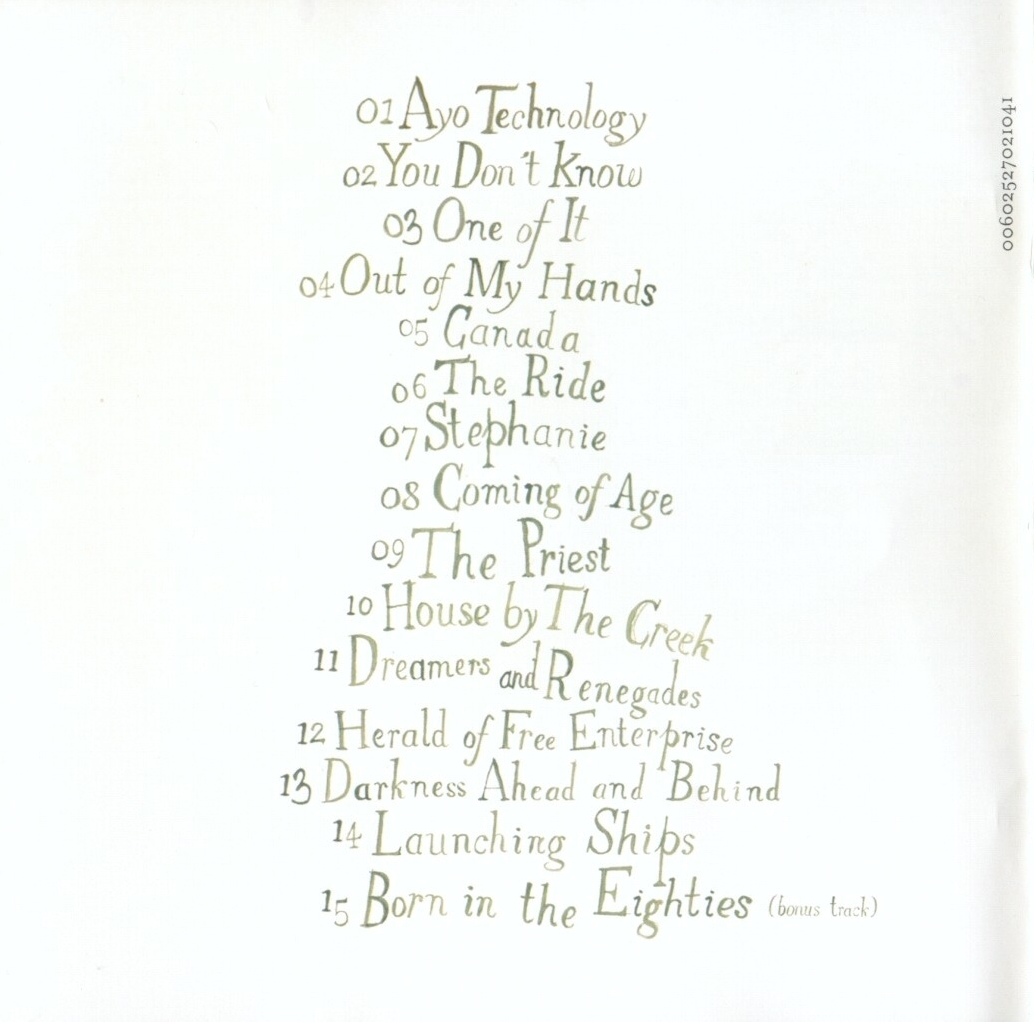 01 Ayo Technology
02 You Don't Know
03 One of It
04 Out of My Hands
05 Canada
06 The Ride
07 Stephanie
08 Coming of Age
09 The Priest
10 House by The Creek
11 Dreamers and Renegades
12 Herald of Free Enterprise
13 Darkness Ahead and Behind
14 Launching Ships
15 Born in the Eighties (bonus track)
00602527021041